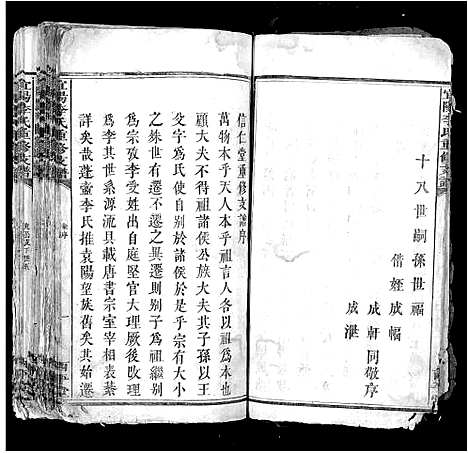 宜陽李氏重修支譜
十八世嗣孫世福
偕姪成幅
成軒同敬序
成泄
信仁堂重修支譜序
萬物本乎天人本乎祖言人以祖為本也
顧大夫不得祖諸侯公族大夫其子孫以王
父字為氏使自別於諸侯於是乎宗有百世
之殊世有遷之不遷之別子為祖繼別
為宗攷李受姓出自庭堅官大理厥後改理
為李其世系源流具載唐書宗室宰相表茲
詳矣哉蓬壼李氏推袁陽望族舊矣其始遷
宜陽李氏重修支譜
序
一
宜陽李氏重修支譜